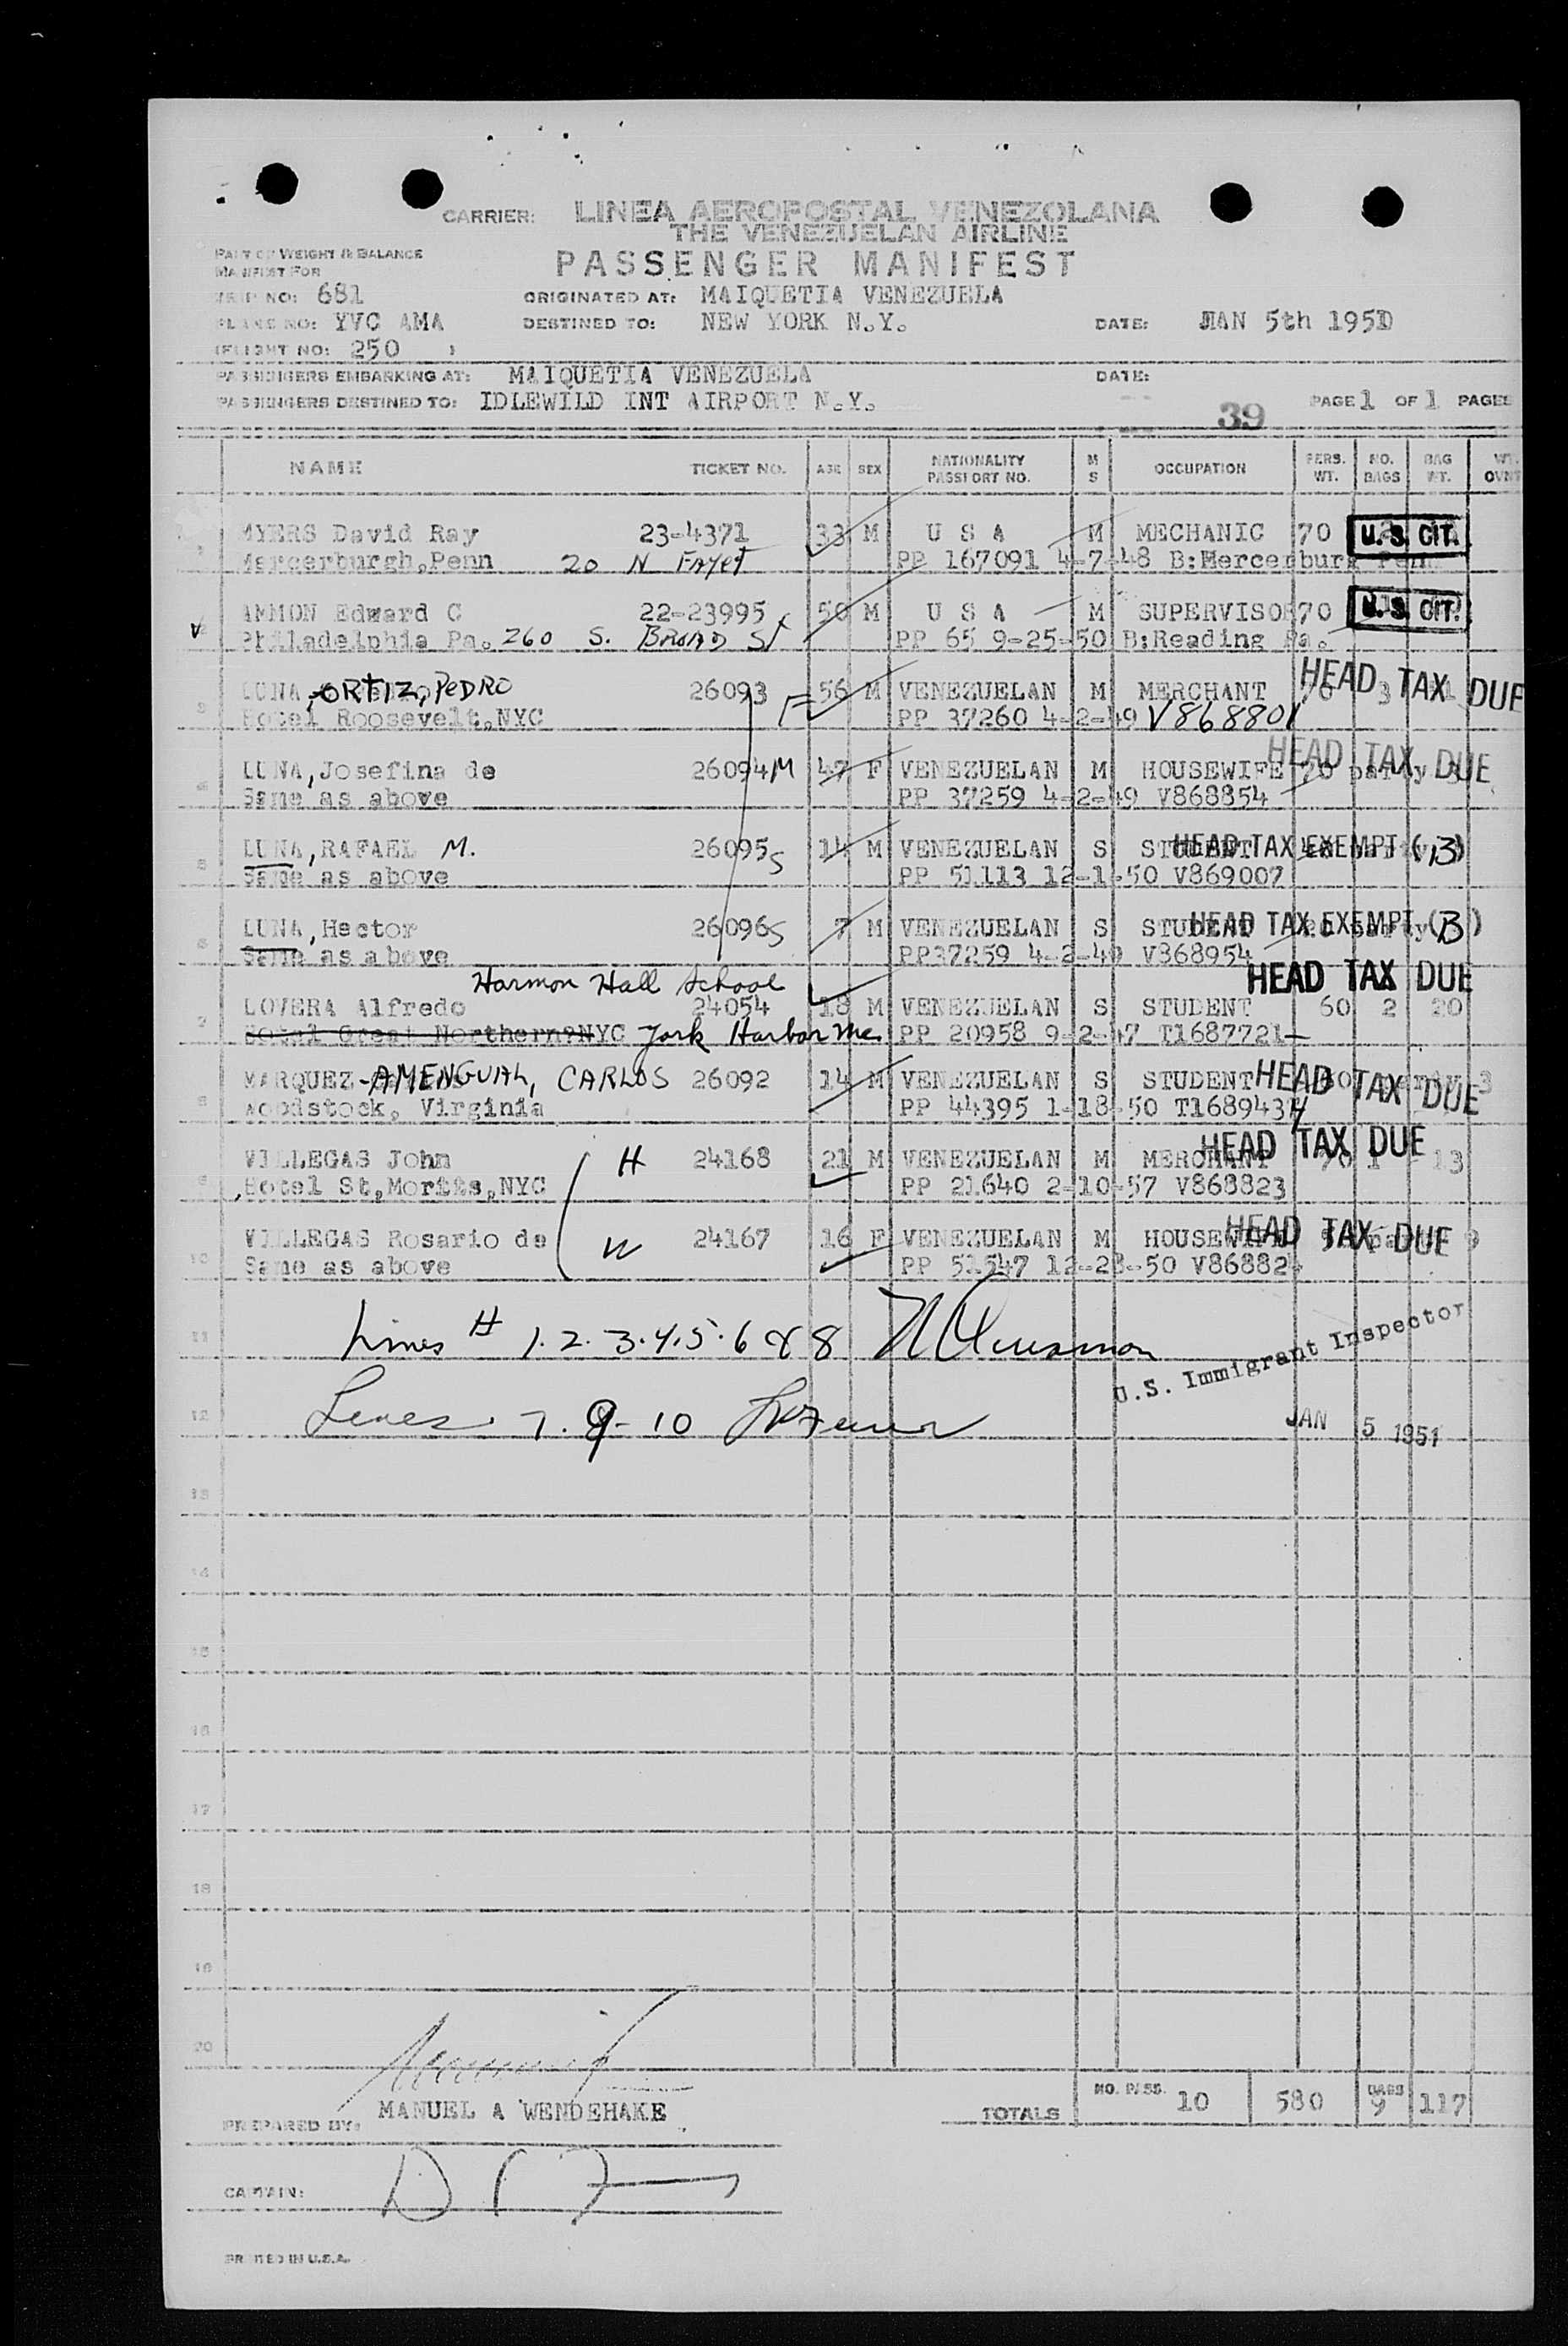 CARRIER: LINEA AEROPOSTAL VENEZOLANA
THE VENEZUELAN AIRLINE
PART OF WEIGHT & BALANCE
MANIFEST FOR
PASSENGER MANIFEST
TRIP NO: 681 ORIGINATED AT: MAIQUETIA VENEZUELA
PLANE NO: YVC AMA DESTINED TO: NEW YORK N.Y. DATE: JAN 5th 1951
(FLIGHT NO: 250 )
PASSENGERS EMBARKING AT: MAIQUETIA VENEZUELA DATE:
PASSENGERS DESTINED TO: IDLEWILD INT AIRPORT N.Y. 39 PAGE 1 OF 1 PAGES
NAME TICKET NO. AGE SEX NATIONALITY PASSPORT NO. M S OCCUPATION PERS. WT. NO. BAGS BAG WT. WT. OVNT
1 MYERS David Ray 23-4371 33 M U S A M MECHANIC 70 U.S. CIT.
Mercerburgh,Penn 20 N FAYET PP 167091 4-7-48 B:Mercerburg Penn
2 AMMON Edward C 22-23995 50 M U S A M SUPERVISOR 70 U.S. CIT.
Philadelphia Pa. 260 S. BROAD St PP 65 9-25-50 B:Reading Pa.
3 LUNA,-ORTIZ, PEDRO 26093 F 56 M VENEZUELAN M MERCHANT 70 3 HEAD TAX DUE
Hotel Roosevelt,NYC PP 37260 4-2-49 V868801
4 LUNA,Josefina de 26094 M 47 F VENEZUELAN M HOUSEWIFE 70 party 3 HEAD TAX DUE
Same as above PP 37259 4-2-49 V868854
5 LUNA,RAFAEL M. 26095 S 14 M VENEZUELAN S STUDENT HEAD TAX EXEMPT (B)
Same as above PP 51113 12-1-50 V869007
6 LUNA,Hector 26096 S 7 M VENEZUELAN S STUDENT HEAD TAX EXEMPT (B)
Same as above PP37259 4-2-49 V868954
Harmon Hall School HEAD TAX DUE
7 LOVERA Alfredo 24054 18 M VENEZUELAN S STUDENT 60 2 20
Hotel Great Northern?NYC York Harbor Me. PP 20958 9-2-47 T1687721
8 MARQUEZ-AMENGUAL, CARLOS 26092 14 M VENEZUELAN S STUDENT 60 party 3 HEAD TAX DUE
Woodstock, Virginia PP 44395 1-18-50 T1689434
9 VILLEGAS John H 24168 21 M VENEZUELAN M MERCHANT 70 1 13 HEAD TAX DUE
,Hotel St,Moritz,NYC PP 21640 2-10-57 V868823
10 VILLEGAS Rosario de W 24167 16 F VENEZUELAN M HOUSEWIFE HEAD TAX DUE
Same as above PP 51547 12-28-50 V868824
11 Lines # 1.2.3.4.5.6 & 8
U.S. Immigrant Inspector
12 Lines 7. 9- 10
JAN 5 1951
13
14
15
16
17
18
19
20
TOTALS NO. PASS. 10 580 BAGS 9 117
PREPARED BY: MANUEL A WENDEHAKE
CAPTAIN:
PRINTED IN U.S.A.